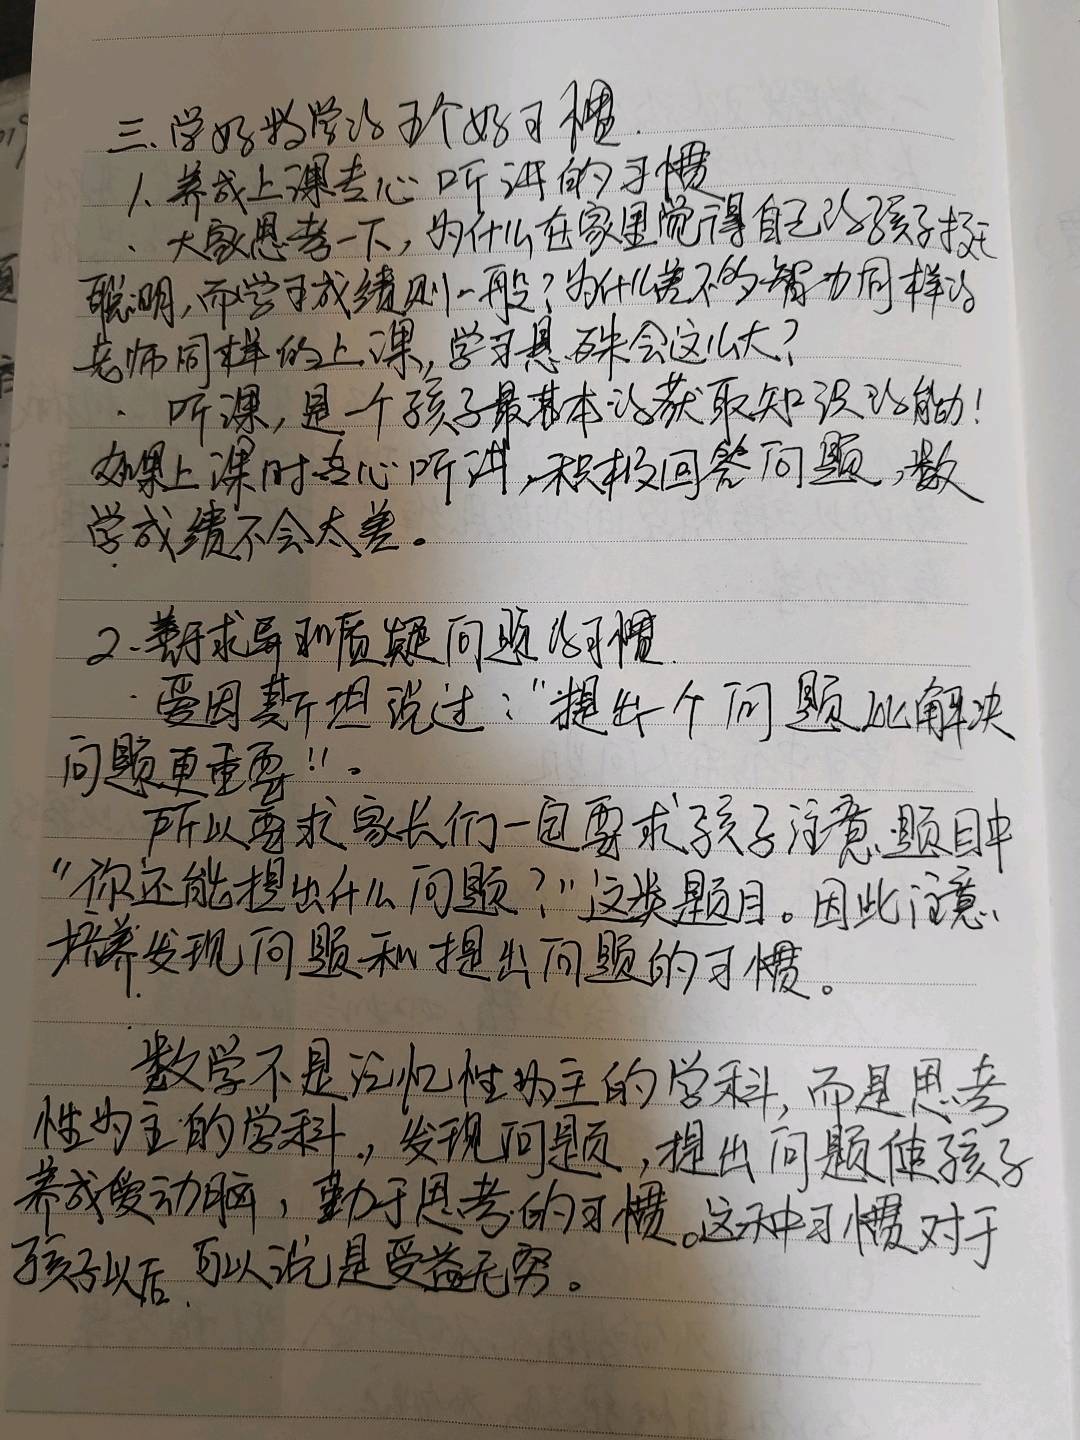 三、学好数学的五个好习惯.
1、养成上课专心听讲的习惯
· 大家思考一下,为什么在家里觉得自己的孩子挺
聪明,而学习成绩则一般?为什么差不多智力同样的
老师同样的上课,学习悬殊会这么大?
· 听课,是一个孩子最基本的获取知识的能力!
如果上课时专心听讲,积极回答问题,数
学成绩不会太差。
2、善于求异和质疑问题的习惯.
· 爱因斯坦说过:"提出一个问题比解决
问题更重要"。
所以要求家长们一定要求孩子注意题目中
"你还能提出什么问题?"这类题目。因此注意
培养发现问题和提出问题的习惯。
数学不是记忆性为主的学科,而是思考
性为主的学科,发现问题,提出问题使孩子
养成爱动脑,勤于思考的习惯。这种习惯对于
孩子以后,可以说是受益无穷。